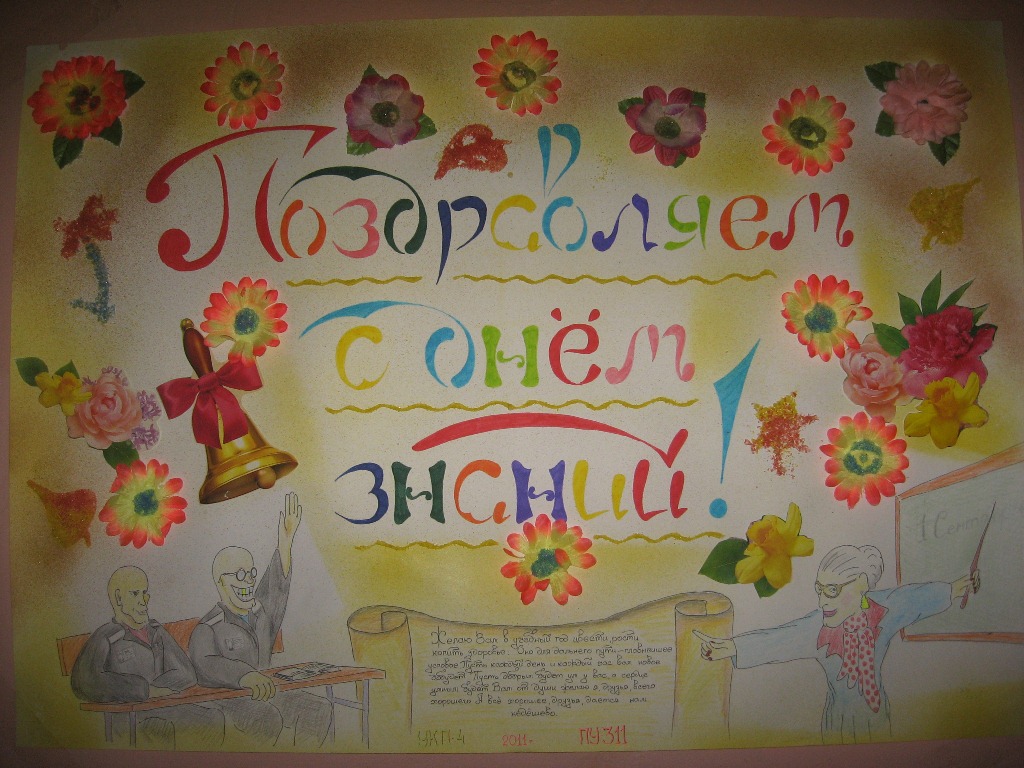 Поздравляем
с днём
знаний!
1 Сентя
Желаю Вам в учебный год цвести, расти,
копить здоровье. Оно для дальнего пути – главнейшее
условье. Пусть каждый день и каждый час вам новое
добудет. Пусть добрым будет ум у вас, а сердце
умным будет. Вам от души желаю я, друзья, всего
хорошего. А всё хорошее, друзья, дается нам
недёшево.
УКП-4 2011г. ПУ 311